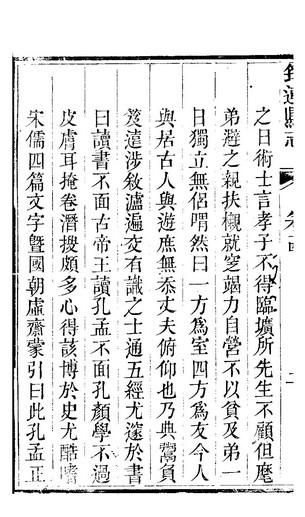 之日術士言孝子不得臨壙所先生不顧但麾
弟避之親扶櫬就窆竭力自營不以貧及弟一
日獨立無侶喟然曰一方為室四方為友今人
與居古人與遊庶無忝丈夫俯仰也乃典鬻負
笈遠涉敘瀘遍交有識之士通五經尤邃於書
曰讀書不面古帝王讀孔孟不面孔顏學不過
皮膚耳掩卷潛搜頗多心得該博於史尤酷嗜
宋儒四篇文字曁國朝虛齋蒙引曰此孔孟正